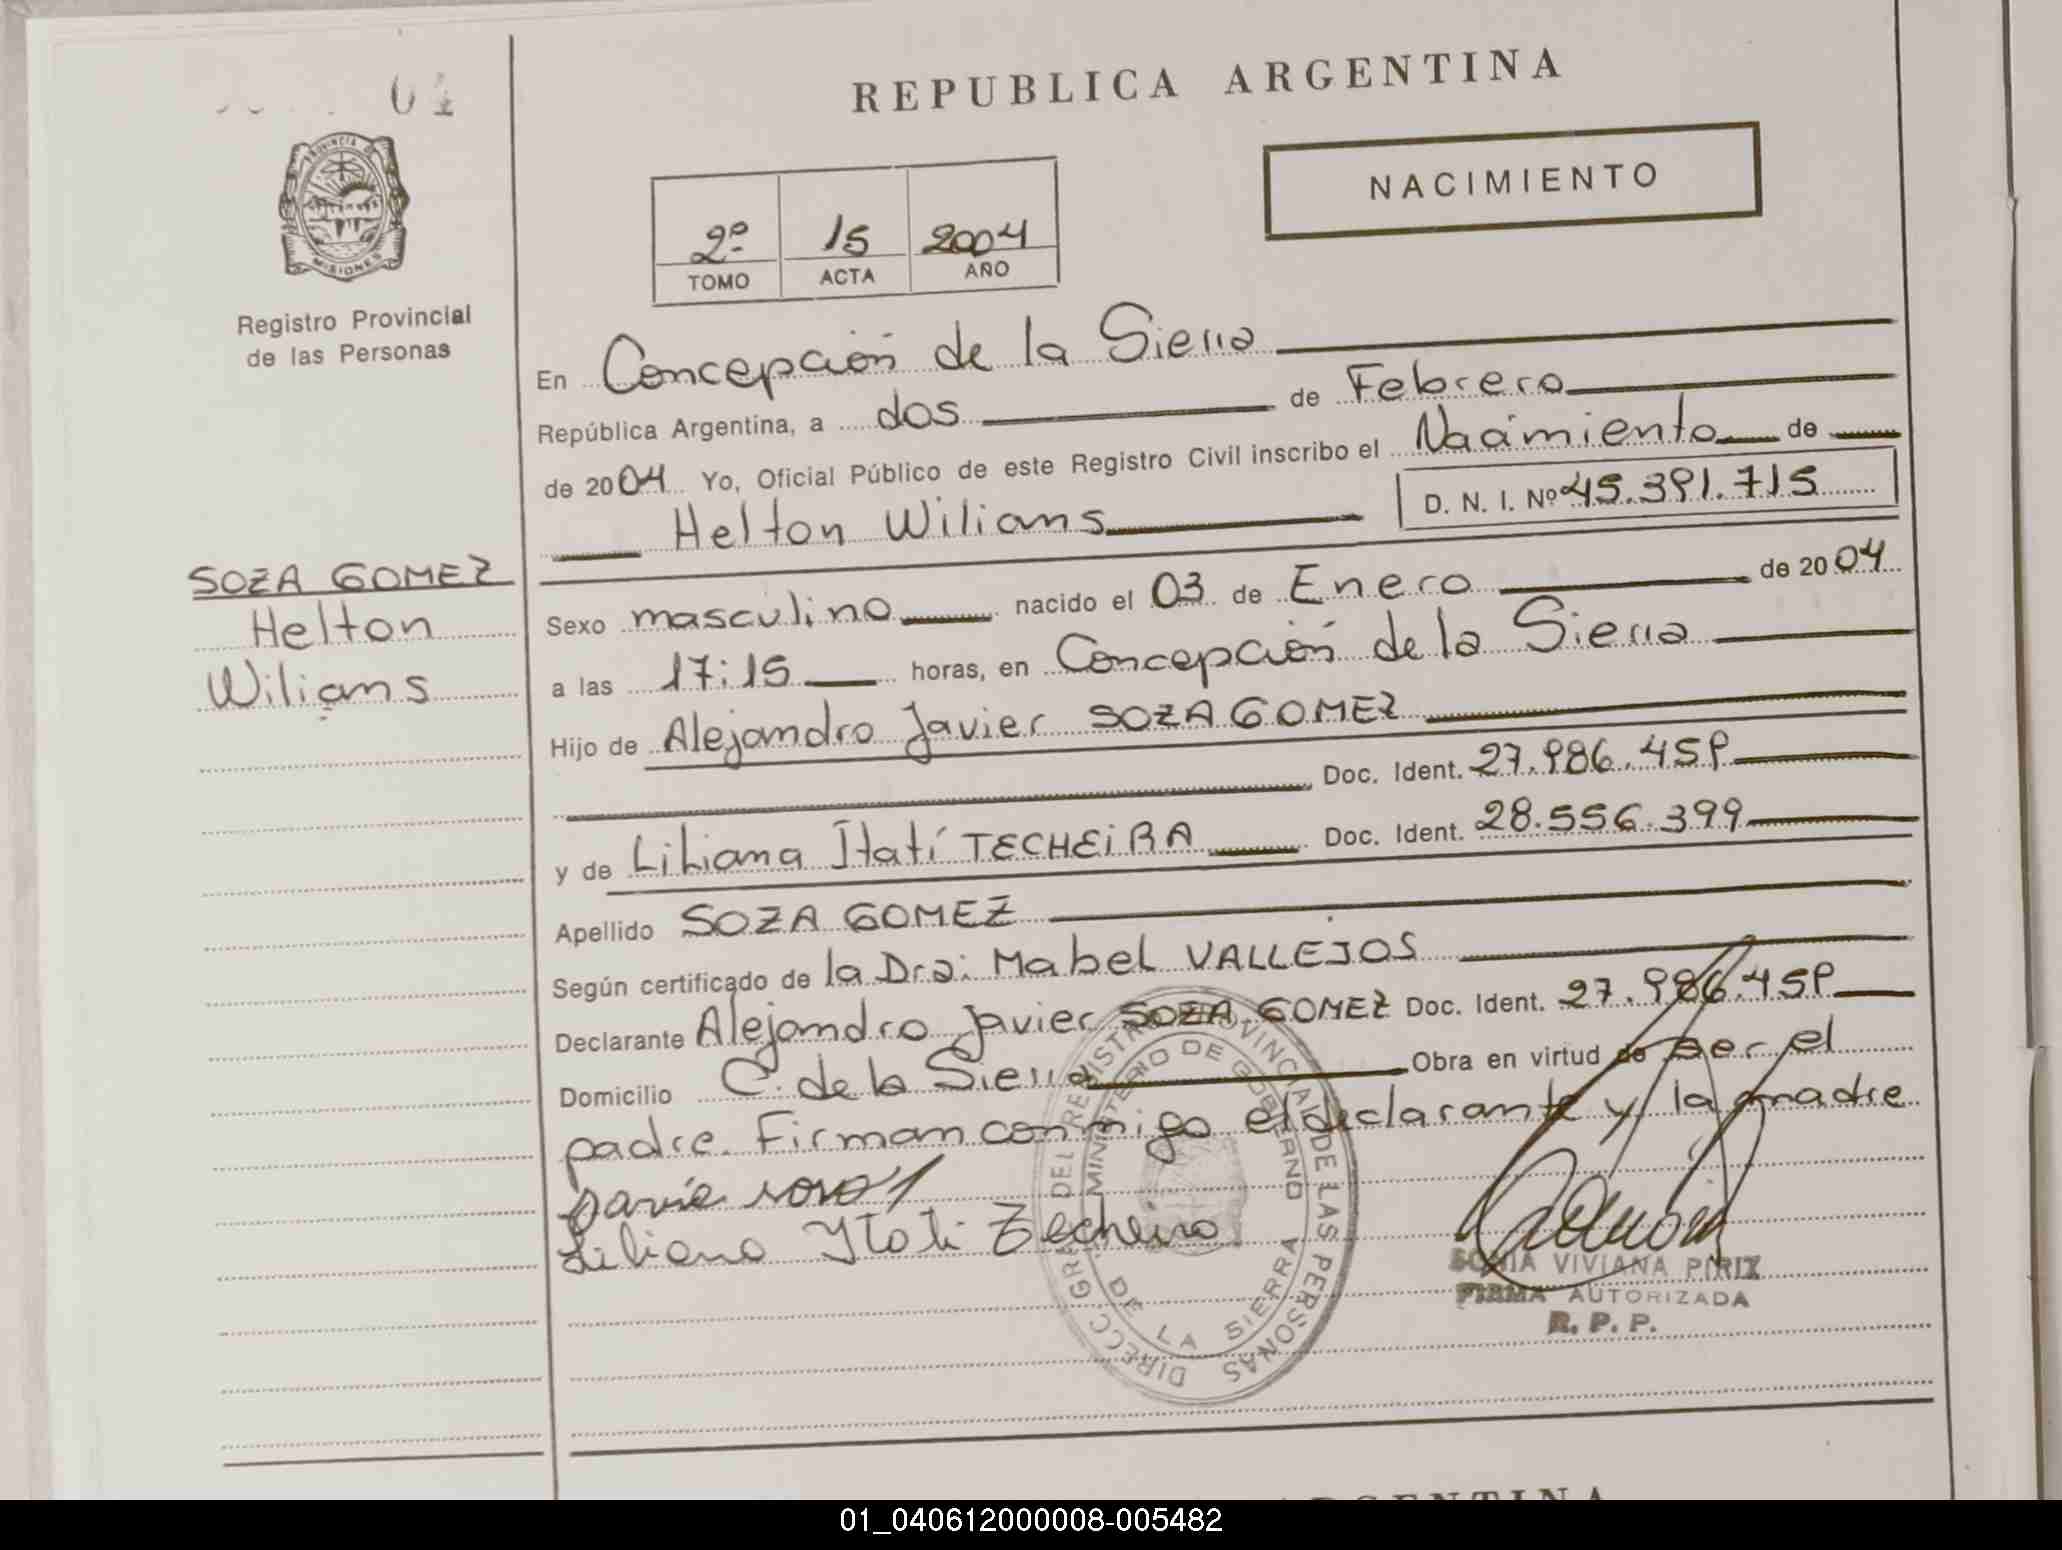 REPUBLICA ARGENTINA
NACIMIENTO
2º 15 2004
TOMO ACTA AÑO
PROVINCIA DE
MISIONES
Registro Provincial
de las Personas
SOZA GOMEZ
Helton
Wilians
En Concepción de la Sierra
República Argentina, a dos de Febrero
de 2004 Yo, Oficial Público de este Registro Civil inscribo el Nacimiento de
Helton Wilians D. N. I. Nº 45.391.715
Sexo masculino nacido el 03 de Enero de 2004
a las 17:15 horas, en Concepción de la Sierra
Hijo de Alejandro Javier SOZA GOMEZ
Doc. Ident. 27.986.459
y de Liliana Itatí TECHEiRA Doc. Ident. 28.556.399
Apellido SOZA GOMEZ
Según certificado de la Dra: Mabel VALLEJOS
Declarante Alejandro Javier SOZA GOMEZ Doc. Ident. 27.986.459
Domicilio C. de la Sierra Obra en virtud de ser el
padre. Firman conmigo el declarante y la madre
Liliana Itati Techeira
DIRECC. GRAL. DEL REGISTRO PROVINCIAL DE LAS PERSONAS
MINISTERIO DE GOBIERNO
DE LA SIERRA
SONIA VIVIANA PIRIZ
FIRMA AUTORIZADA
R. P. P.
ARGENTINA
01_040612000008-005482